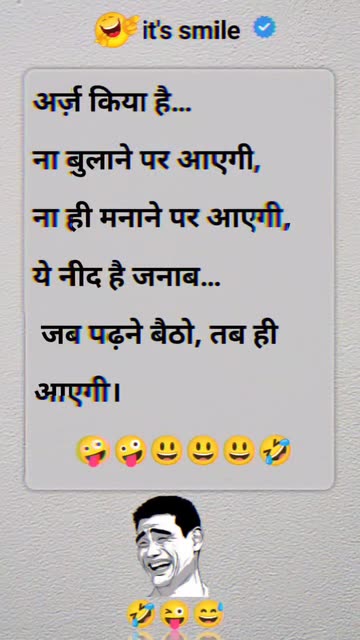 it's smile
अर्ज़ किया है...
ना बुलाने पर आएगी,
ना ही मनाने पर आएगी,
ये नीद है जनाब...
जब पढ़ने बैठो, तब ही
आएगी।